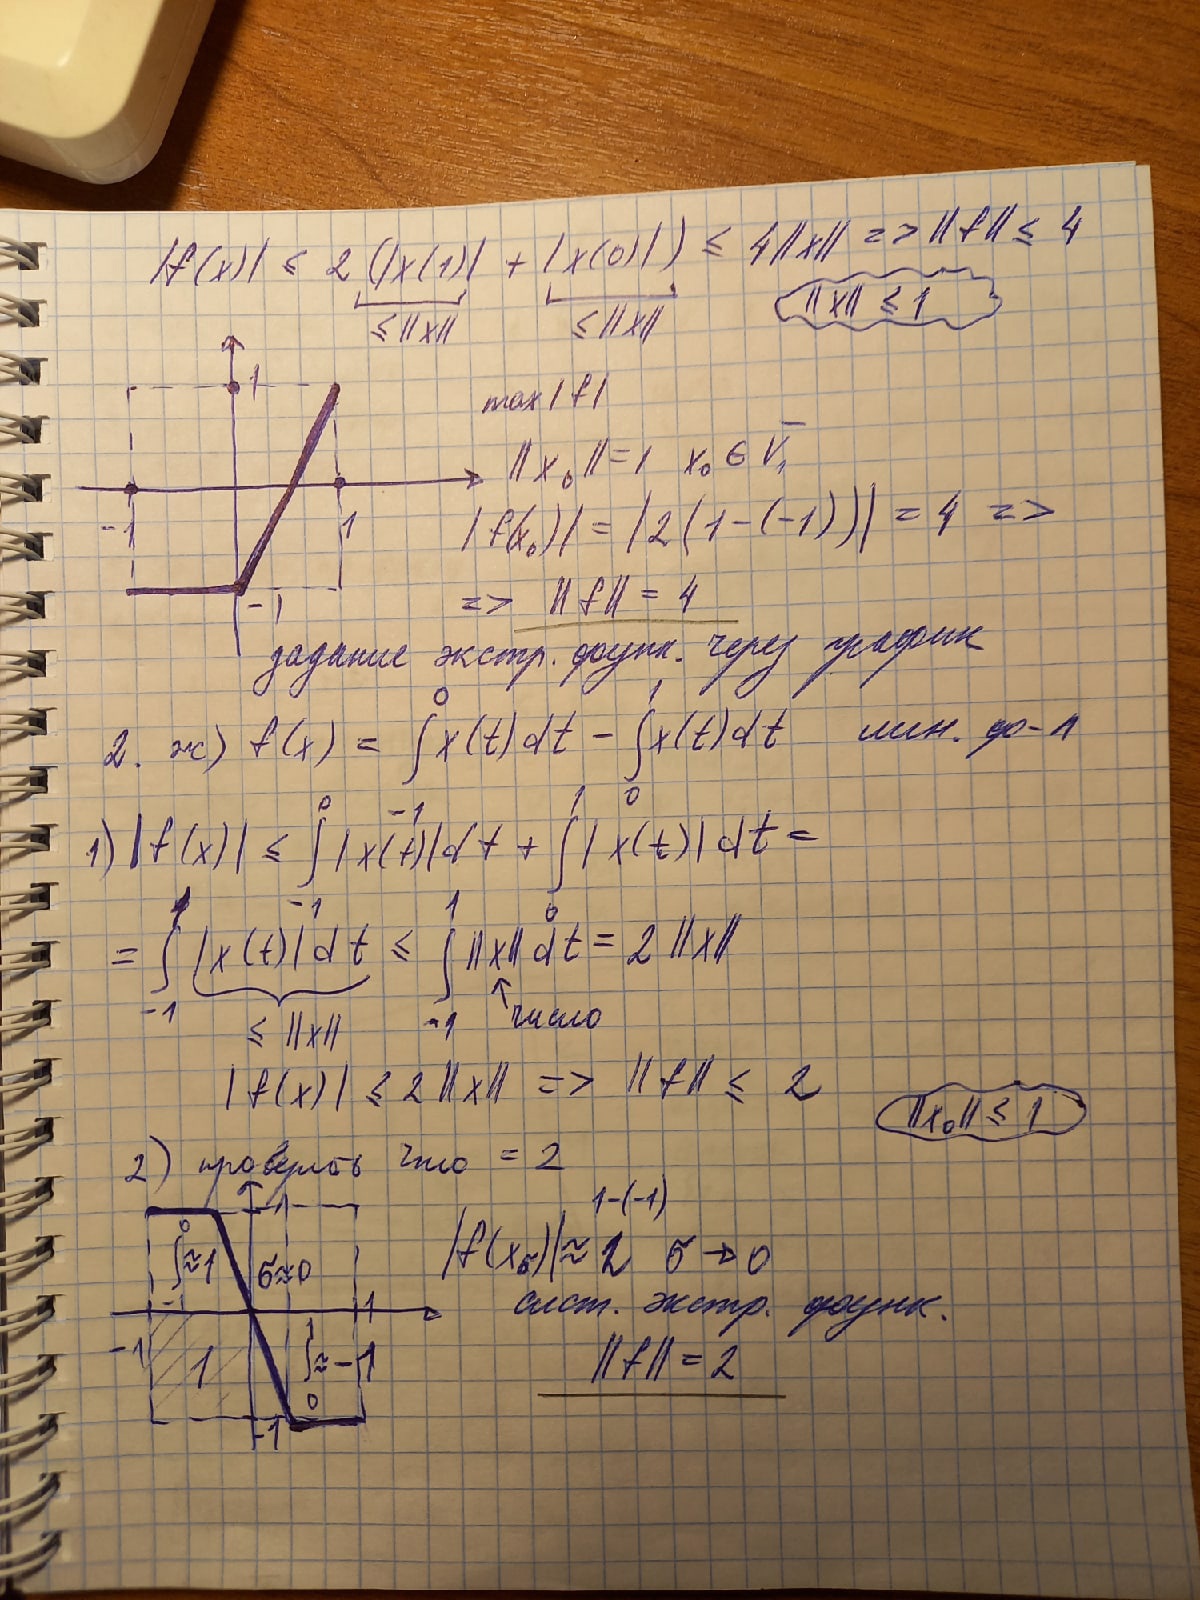 |f(x)| ≤ 2 (|x(1)| + |x(0)|) ≤ 4||x|| => ||f|| ≤ 4
≤ ||x|| ≤ ||x|| ||x|| ≤ 1
1
max |f|
||x₀|| = 1 x₀ ∈ V̄₁
-1 1
|f(x₀)| = |2(1-(-1))| = 4 =>
-1
=> ||f|| = 4
задание экстр. функ. через график
2. ж) f(x) = ∫₋₁⁰ x(t)dt - ∫₀¹ x(t)dt лин. ф-л
1) |f(x)| ≤ ∫₋₁⁰ |x(t)|dt + ∫₀¹ |x(t)|dt =
= ∫₋₁¹ |x(t)|dt ≤ ∫₋₁¹ ||x||dt = 2||x||
≤ ||x|| число
|f(x)| ≤ 2||x|| => ||f|| ≤ 2
||x₀|| ≤ 1
2) проверить что = 2
1
1-(-1)
∫₋₁⁰ ≈ 1 σ≈0 |f(x_σ)| ≈ 2 σ → 0
-1 1
сист. экстр. функ.
1 ∫₀¹ ≈ -1 ||f|| = 2
-1